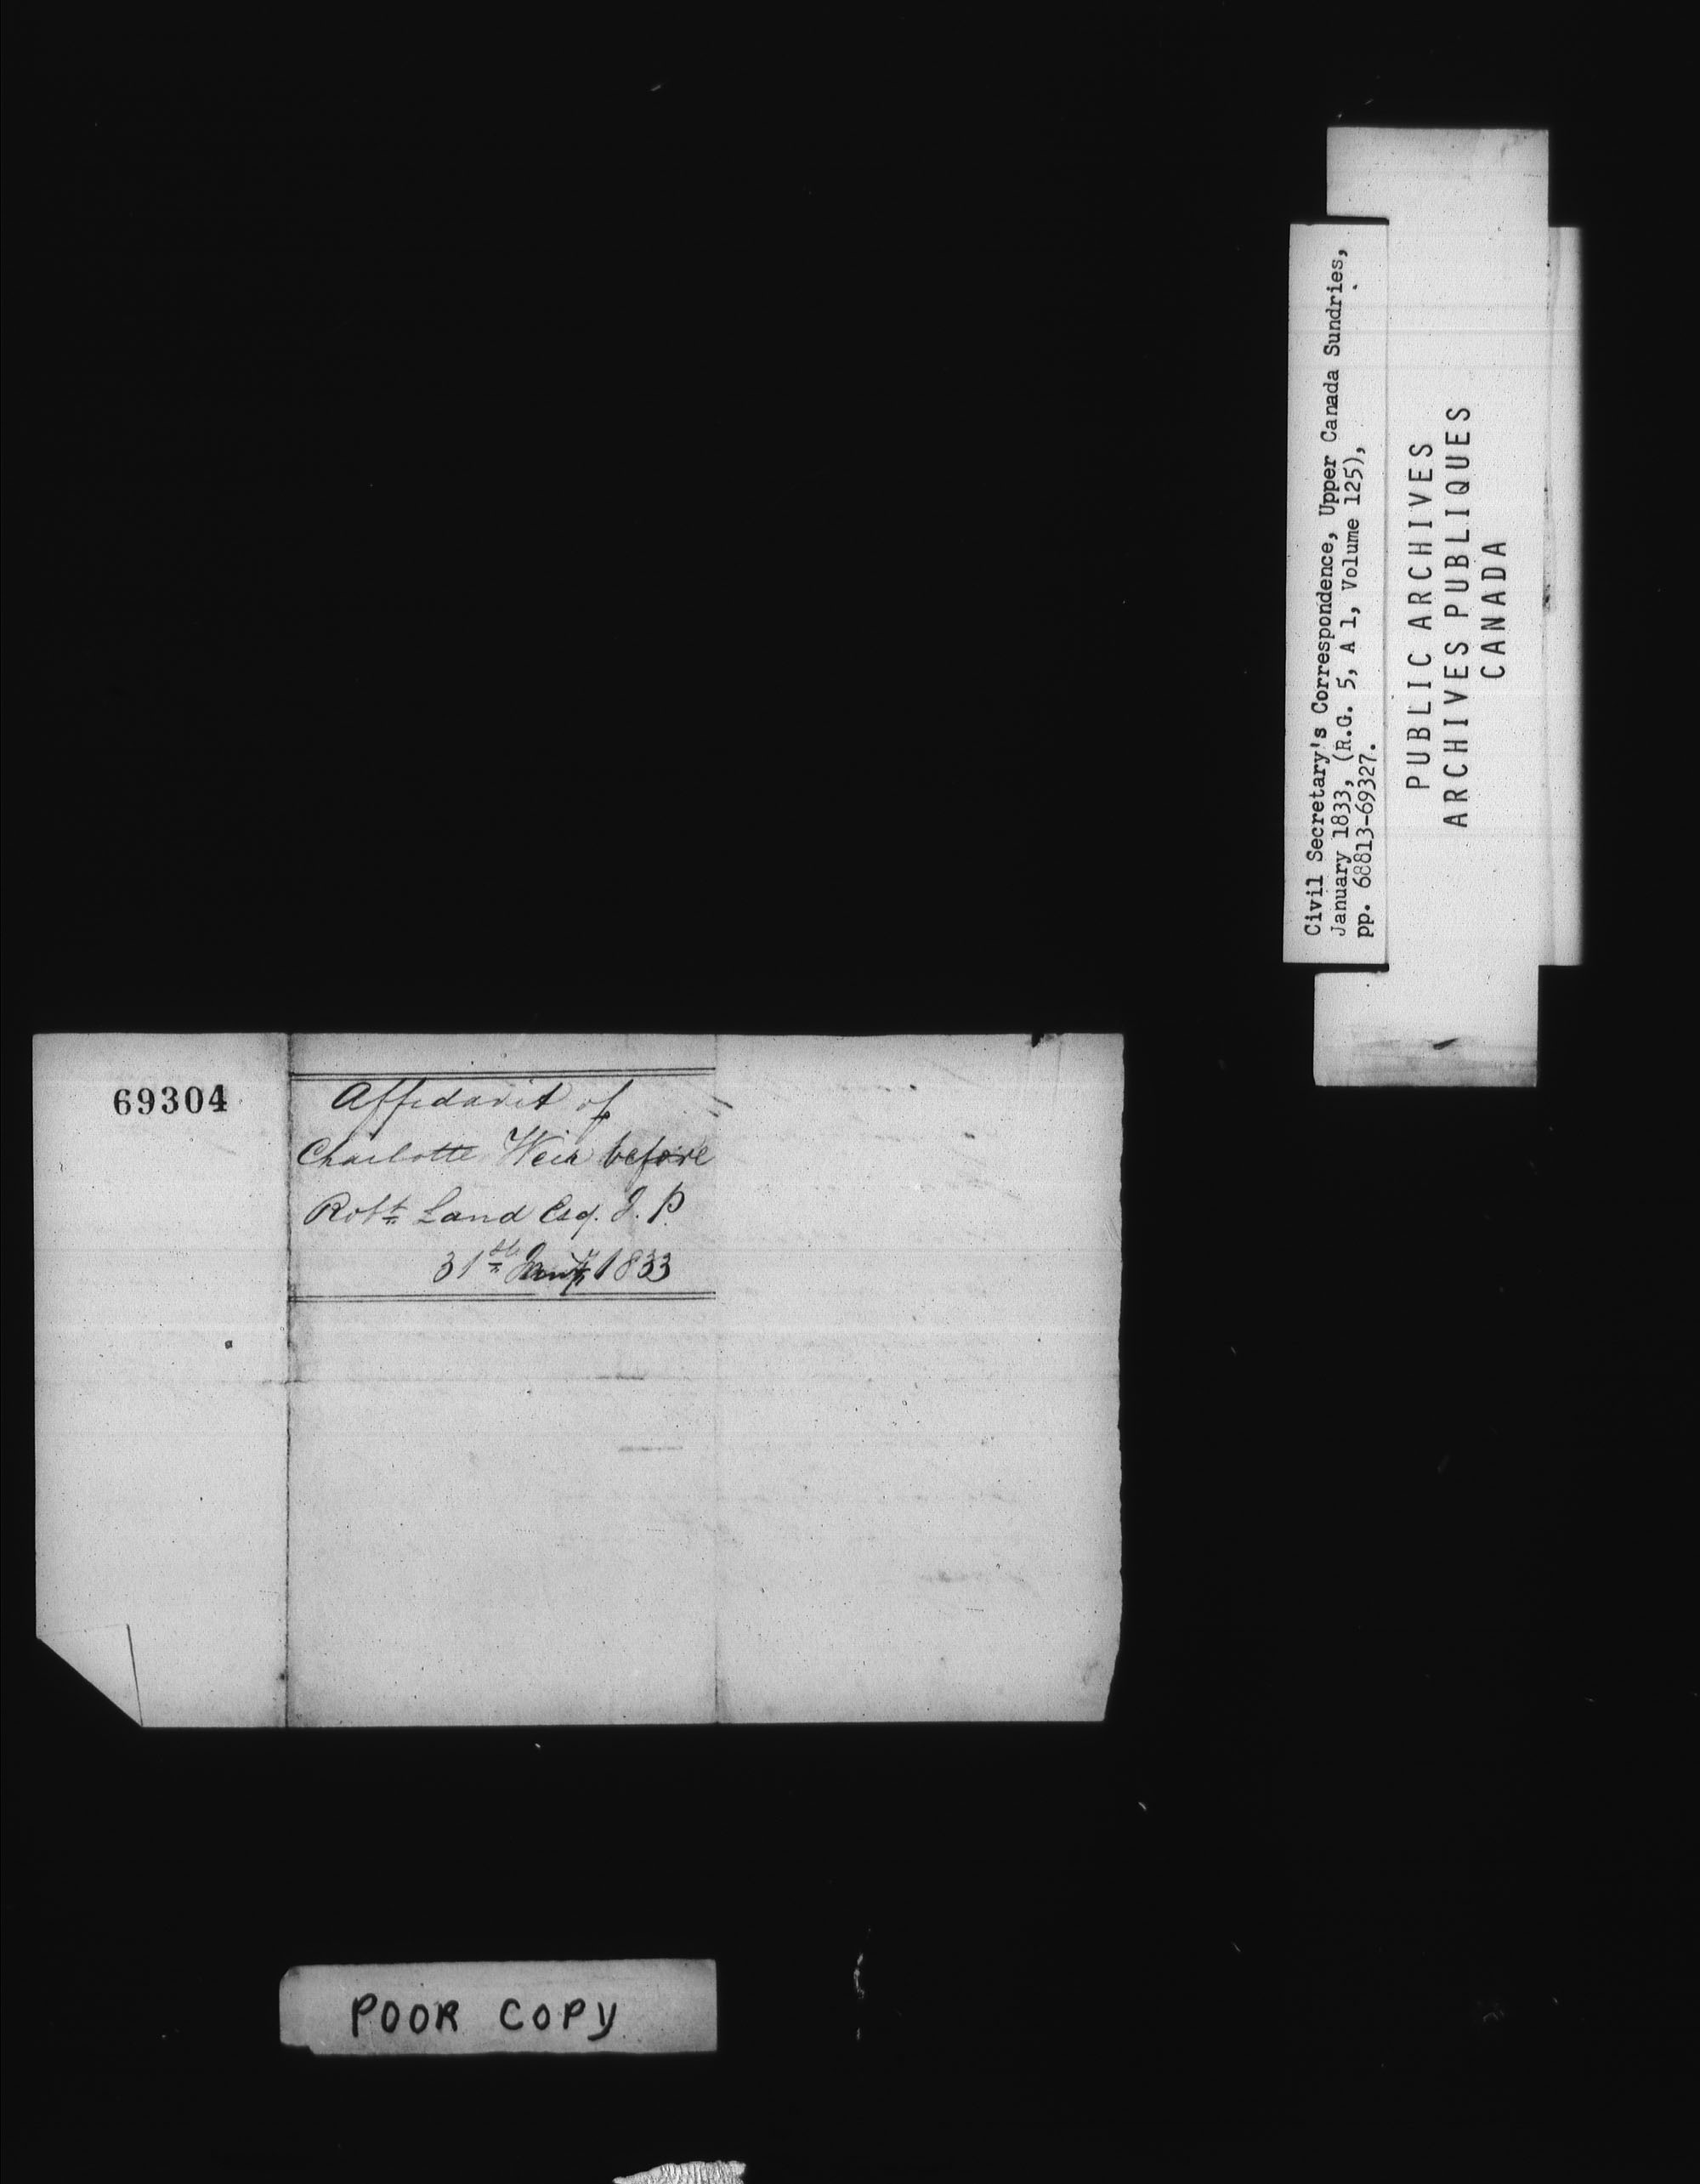 Civil Secretary's Correspondence, Upper Canada Sundries,
January 1833, (R.G. 5, A 1, Volume 125),
pp. 68813-69327.
PUBLIC ARCHIVES
ARCHIVES PUBLIQUES
CANADA
69304
Affidavit of
Charlotte Weir before
Robt Land Esq. J. P.
31st Jany 1833
POOR COPY